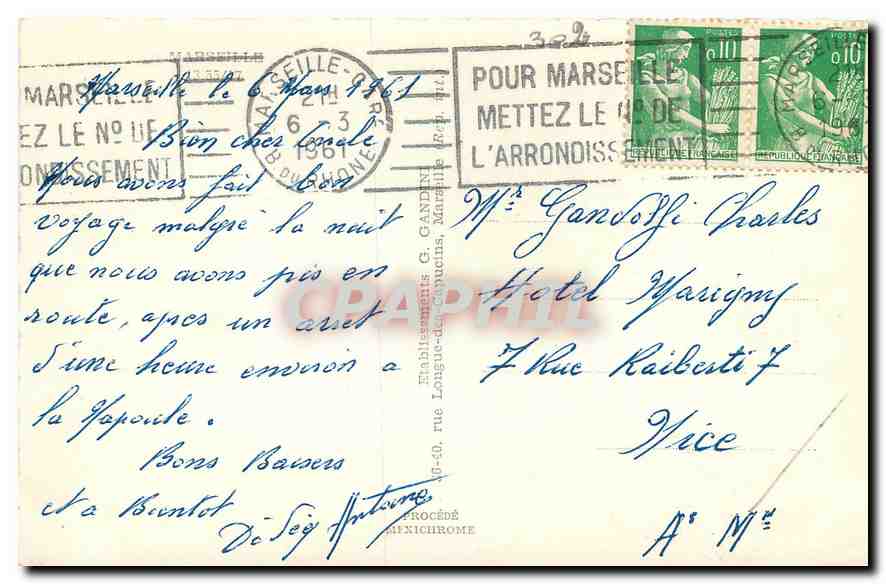 MARSEILLE
Marseille le 6 Mars 1961
Bien cher Oncle
Nous avons fait bon
voyage malgré la nuit
que nous avons pis en
route, apres un arret
d'une heure environ a
la Napoule.
Bons Baisers
et a Bientot
Antoine
MARSEILLE-GARE
21H
6-3
1961
B. DU RHONE
MARSEILLE
EZ LE No DE
ONDISSEMENT
302
POUR MARSEILLE
METTEZ LE No DE
L'ARRONDISSEMENT
POSTES
0,10
REPUBLIQUE FRANÇAISE
POSTES
0,10
REPUBLIQUE FRANÇAISE
Mr Gandolfi Charles
Hotel Marigny
7 Rue Raiberti 7
Nice
As Mes
Etablissements G. GANDINI
36-40, rue Longue-des-Capucins, Marseille (Rep. int.)
PROCÉDÉ
MEXICHROME
CPAPHIL